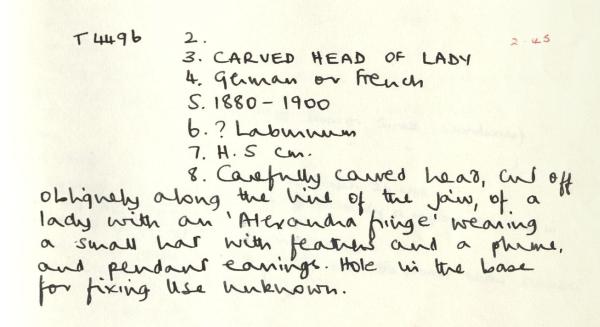 T4496 2. 2-45
3. CARVED HEAD OF LADY
4. German or French
5. 1880-1900
6. ? Laburnum
7. H. 5 cm.
8. Carefully carved head, cut off
obliquely along the line of the jaw, of a
lady with an 'Alexandra fringe' wearing
a small hat with feathers and a plume,
and pendant earrings. Hole in the base
for fixing Use unknown.